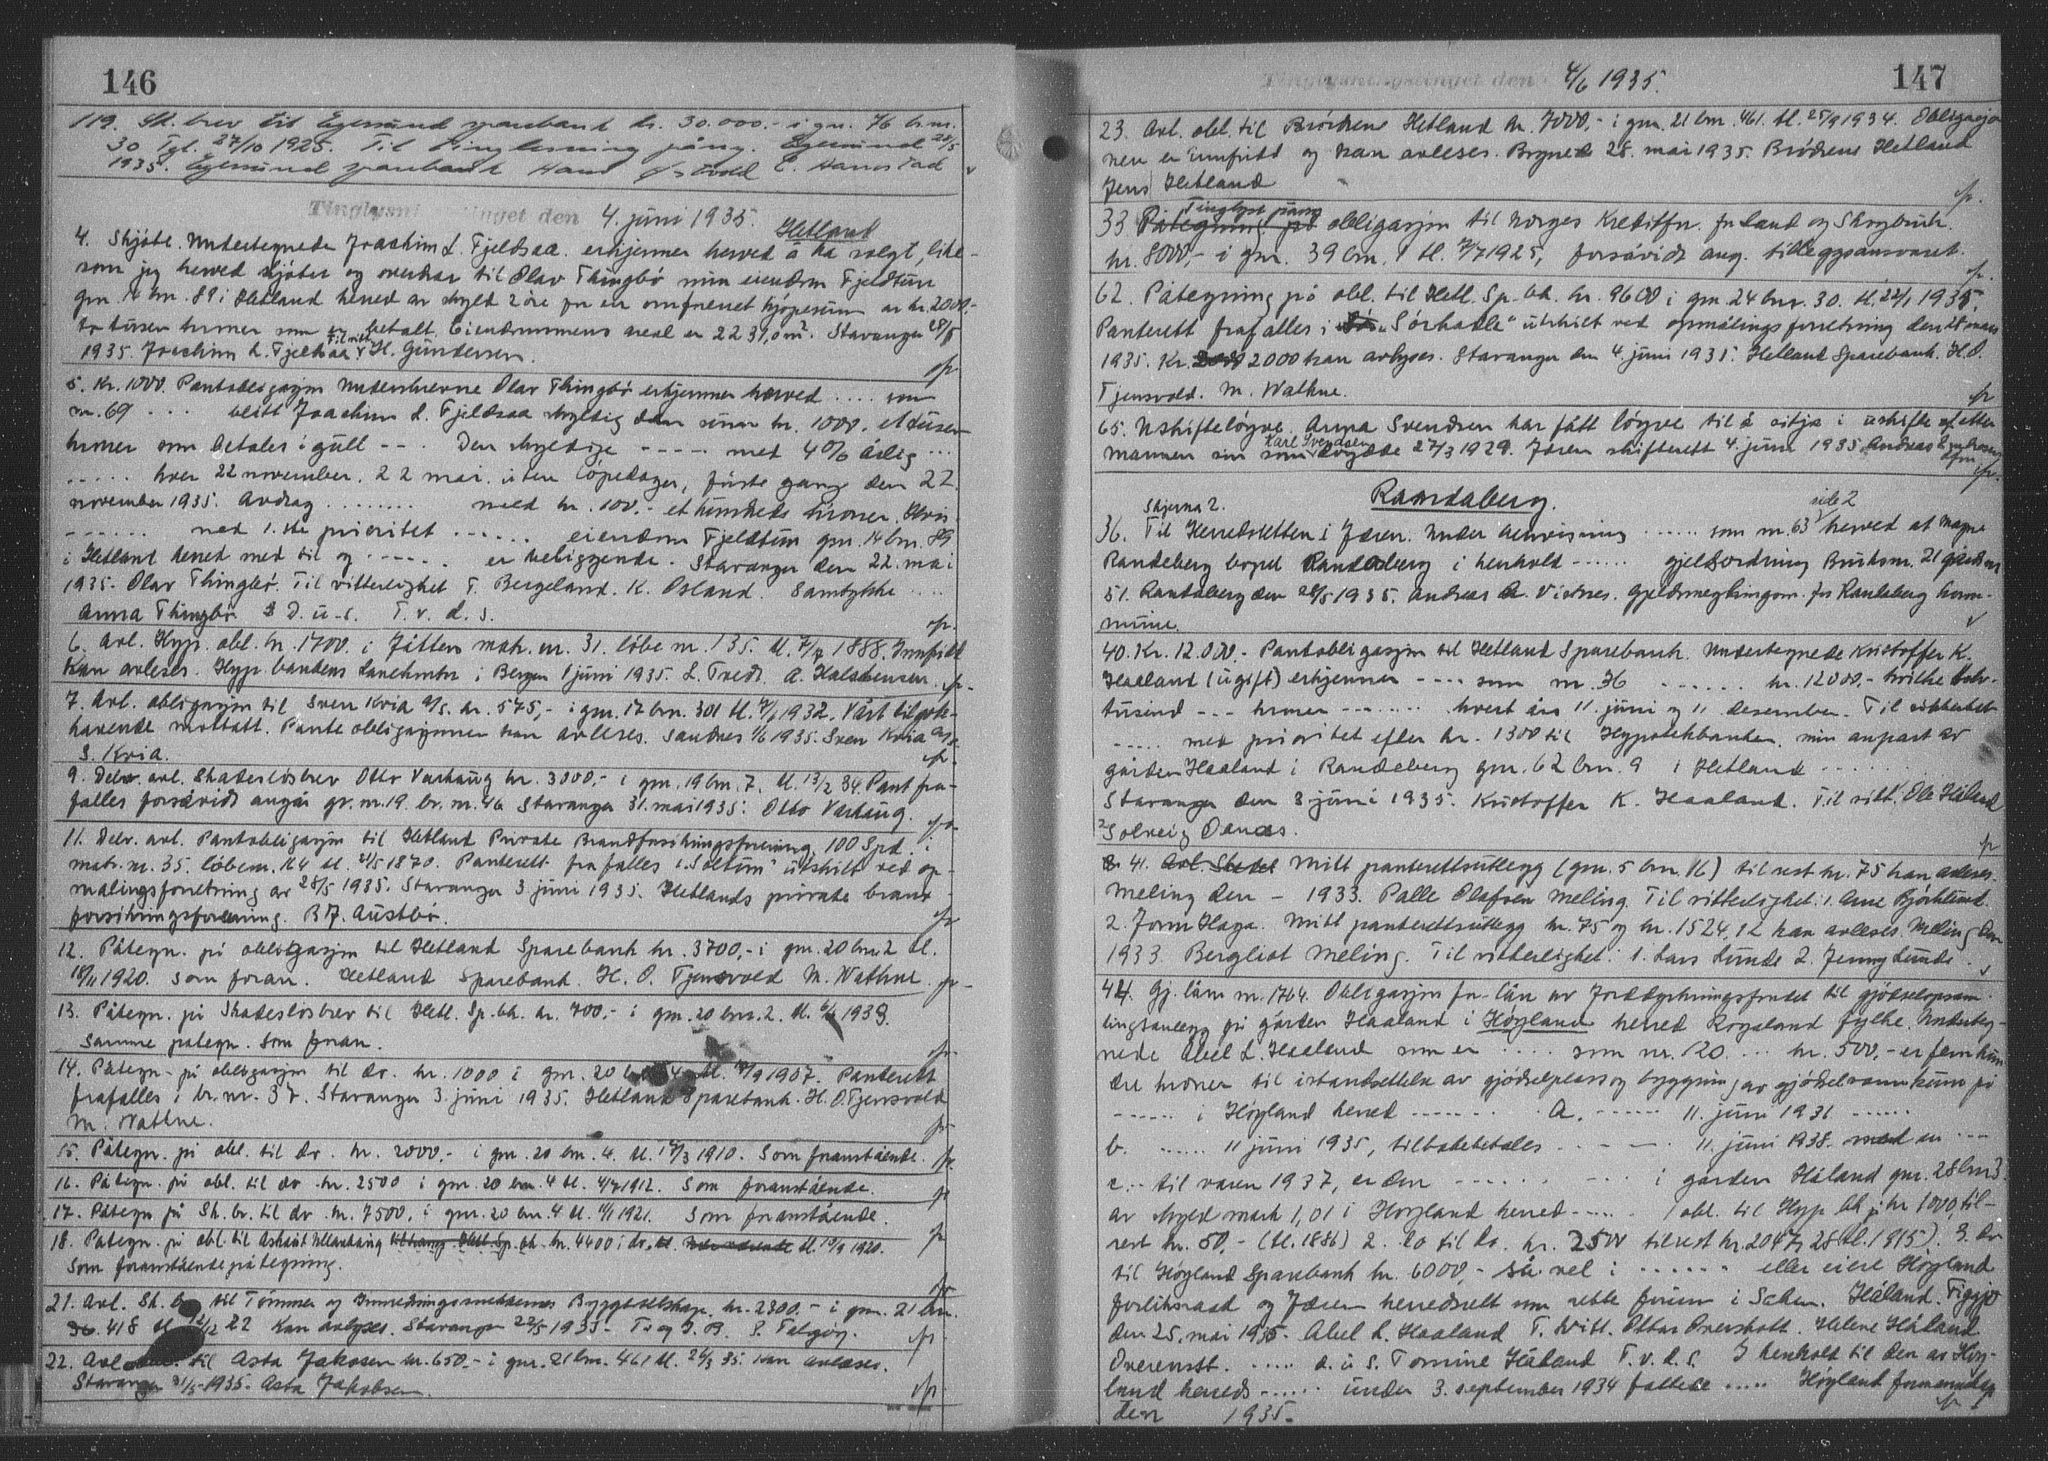 146
119. Sk.brev til Egersund sparebank kr. 30.000.- i gnr. 76 bnr.
30 Tgl. 27/10 1925. Til tinglysning påny. Egersund 28/5
1935. Egersund sparebank Hans E. Hanstad
Tinglysni inget den 4. juni 1935. Hetland
4. Skjøte. Undertegnede Joachim L. Fjeldsaa erkjenner herved å ha solgt, like-
som jeg herved skjøter og overdrar til Olav Thingbø min eiendom Fjeldtun
gnr. 14 bnr. 89 i Hetland herred av skyld 2 øre for en omforenet kjøpesum av kr. 2000.-
to tusen kroner som er betalt. Eiendommens areal er 2231,0 m². Stavanger 28/5
1935. Joachim L. Fjeldsaa Til vitt. H. Gundersen.
5. Kr. 1000. Pantobligasjon Underskrevne Olav Thingbø erkjenner herved .... som
nr. 69 ... blitt Joachim L. Fjeldsaa skyldig den sum kr. 1000. et tusen
kroner som betales i gull --- Den skyldige ----- med 4% årlig ...
..... hver 22 november. 22 mai uten løpedager, første gang den 22.
november 1935. Avdrag ........ med kr. 100.- et hundrede kroner. Hvis
------ med 1.ste prioritet ...... eiendom Fjeldtun gnr. 14 bnr. 89
i Hetland herred med til og ----- er beliggende. Stavanger den 22. mai
1935. Olav Thingbø. Til vitterlighet T. Bergeland. K. Osland. Samtykke ....
Anna Thingbø D. u. s. T. v. d. s.
6. Avl. Hyp. obl. kr. 1700. i Jåtten matr. nr. 31. løbe nr. 135. tl. 7/7 1888. Innfridd
Kan avleses. Hyp. bankens lånekontor i Bergen 1 juni 1935. L. Tvedt. A. Halstensen.
7. Avl. obligasjon til Sven Kvia kr. 575,- i gnr. 17 bnr. 301 tl. 1932. Vårt tilgode-
havende mottatt. Panteobligasjonen kan avleses. Sandnes 1/6 1935. Sven Kvia
S. Kvia.
9. Delv. avl. Skadesløsbrev Otto Varhaug kr. 3000.- i gnr. 19 bnr. 7. tl. 13/2 34. Pant fra-
falles forsåvidt angår gr. nr. 19. br. nr. 46 Stavanger 31. mai 1935. Otto Varhaug.
11. Delv. avl. Pantobligasjon til Hetland Private Brandforsikringsforening 100 Spd. i
matr. nr. 35. løbenr. 164 tl. 21/5 1870. Panterett frafalles i "Soltun" utskilt ved op-
målingsforretning av 28/5 1935. Stavanger 3 juni 1935. Hetlands private brann-
forsikringsforening. B. J. Austbø.
12. Påtegn. på obligasjon til Hetland Sparebank kr. 3700,- i gnr. 20 bnr. 2 tl.
16/11 1920. Som foran. Hetland Sparebank. H. O. Tjensvold M. Wathne.
13. Påtegn. på Skadesløsbrev til Hetl. Sp. bk. kr. 700.- i gnr. 20 bnr. 2. tl. 1933.
Samme påtegn. som foran.
14. Påtegn. på obligasjon til do. kr. 1000 i gnr. 20 bnr. 4 tl. 1907. Panterett
frafalles i br. nr. 37. Stavanger 3 juni 1935. Hetland Sparebank. H. O. Tjensvold
M. Wathne.
15. Påtegn. på obl. til do. kr. 2000.- i gnr. 20 bnr. 4. tl. 1910. Som foranstående.
16. Påtegn. på obl. til do kr. 2500 i gnr. 20 bnr. 4 tl. 1912. Som foranstående.
17. Påtegn på Sk. br. til do. kr. 7500. i gnr. 20 bnr. 4 tl. 1921. Som foranstående.
18. Påtegn. på obl. til kr. 4400 i do. tl. 1920.
Som foranstående påtegning.
21. Avl. Sk. br. til Tømmer og Innredningssnekkernes Byggeselskap. kr. 2300.- i gnr. 21 bnr.
418 tl 12/12 22 Kan avlyses. Stavanger 22/5 1935.
22. Avl. til Asta Jakobsen kr. 650.- i gnr. 21 bnr. 461 tl. 26/3 35. Kan avleses.
Stavanger 31/5 1935. Asta Jakobsen.
Tinglysningstinget den 4/6 1935.
147
23. Avl. obl. til Brødrene Hetland kr. 7000,- i gnr. 21 bnr. 461. tl. 25/9 1934. Obligasjo-
nen er innfridd og kan avleses. Bryne d. 28. mai 1935. Brødrene Hetland
Jens Hetland
33 Påtegning på Tinglyst påny obligasjon til Norges Kredittfor. for Land og Skogbruk.
kr. 8000,- i gnr. 39 bnr. 1 tl. 1925, forsåvidt ang. tilleggsansvaret.
62. Påtegning på obl. til Hetl. Sp. bk. kr. 9600 i gnr. 24 bnr. 30. tl. 22/1 1935.
Panterett frafalles i "Sørhalle" utskilt ved opmålingsforretning den mars
1935. Kr. 2000 kan avlyses. Stavanger den 4. juni 1935. Hetland Sparebank. H. O.
Tjensvold. M. Wathne.
65. Uskifteløyve. Anna Svendsen har fått løyve til å sitja i uskifte etter
mannen sin Karl Svendsen som døydde 27/3 1929. Jæren skifterett 4. juni 1935
Skjema 2. Randaberg. side 2
36. Til Herredsretten i Jæren. Under henvisning ...... som nr. 63 herved at Magne
Randeberg bopel Randaberg i henhold ------ gjeldsordning Bruksnr. 21 gårdsnr
51. Randaberg den 28/5 1935. Andreas A. Vistnes. Gjeldsmeglingsnm. for Randaberg kom-
mune.
40. Kr. 12.000.- Pantobligasjon til Hetland Sparebank. Undertegnede Kristoffer K.
Haaland (ugift) erkjenner ---- som nr. 36 ...... kr. 12000.- hvilke tolv-
tusind --- kroner ------- hvert års 11. juni og 11 desember. Til sikkerhet
----- med prioritet efter kr. 1300 til Hypotekbanken. min anpart av
gården Haaland i Randeberg gnr. 62 bnr. 9 i Hetland ......
Stavanger den 3 juni 1935. Kristoffer K. Haaland. Til vitt. Ole Håland
Solveig Denæs.
41. Avl. Skadel Mitt panterettsutlegg (gnr. 5 bnr. 16) til rest kr. 75 kan avleses.
Meling den - 1933. Palle Olafsen Meling. Til vitterlighet: 1. Arne Bjørklund.
2. Jorm Haga. Mitt panterettsutlegg kr. 75 og kr. 1524,12 kan avleses. Meling den
1933. Bergliot Meling. Til vitterlighet. 1. Lars Lunde 2. Jenny Lunde.
44. Gj. lån nr. 1764. Obligasjon for lån av Jorddyrkningsfondet til gjødselopsam-
lingsanlegg på gården Haaland i Høyland herred Rogaland fylke. Underteg-
nede Abel L. Haaland som er .... som nr. 120 ... kr. 500,- er fem hun-
dre kroner til istandsettelse av gjødselplass og bygging av gjødselvannkum på
------ i Høyland herred ------- a. ------ 11. juni 1931 ------
b. ...... 11 juni 1935, tilbakebetales ------ 11. juni 1938. med en ---
c. -- til våren 1937, er den ------ i gården Håland gnr. 28 bnr 3.
av skyld mark 1,01 i Høyland herred ----- 1 obl. til Hyp. bk på kr 1000, til-
rest kr. 50,- (tl. 1886) 2. Do til do. kr. 2500 tilrest kr. 2047, 28 (tl. 1915). 3. Do
til Høyland Sparebank kr. 6000,- så vel i ...... eller eiere Høyland
forliksraad og Jæren herredsrett som rette forum i Saken. Håland. Figgjo
den 25. mai 1935. Abel L. Haaland T. vitt. Ottar Overskott. Helene Håland
Overenst. ..... d. u s. Tomine Håland T. v. d. s. I henhold til den av Høy-
land herreds ------ under 3. september 1934 fattede ..... Høyland formannskap
den 1935.